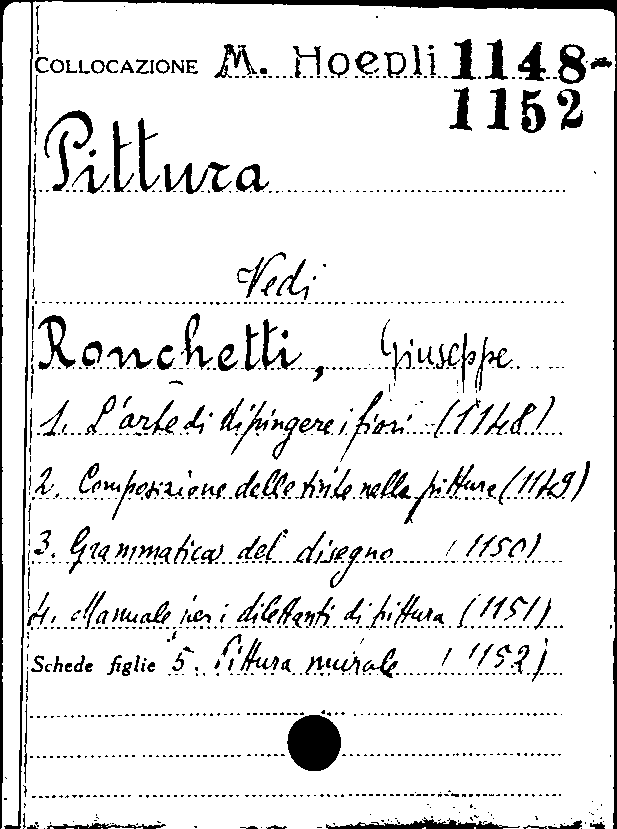 COLLOCAZIONE M. Hoepli 1148-
1152
Pittura
Vedi
Ronchetti, Giuseppe
1. L'arte di dipingere i fiori (1148)
2. Composizione delle tinte nella pittura (1149)
3. Grammatica del disegno (1150)
4. Manuale per i dilettanti di pittura (1151)
Schede figlie 5. Pittura murale (1152)